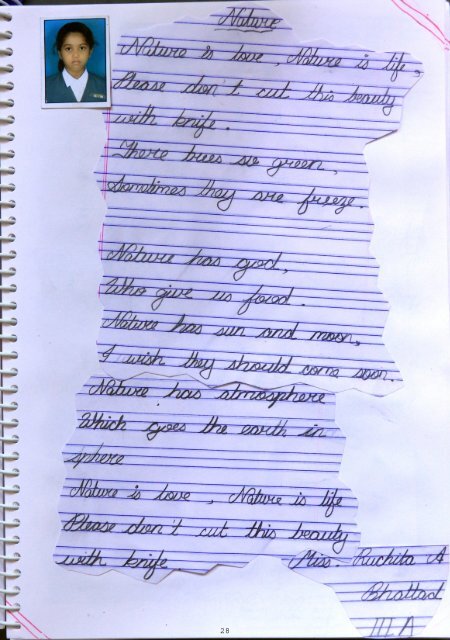 Nature
Nature is love, Nature is life,
Please don't cut this beauty
with knife.
There trees are green,
Sometimes they are freeze.
Nature has god,
Who give us food.
Nature has sun and moon,
I wish they should come soon.
Nature has atmosphere
Which goes the earth in
sphere
Nature is love, Nature is life
Please don't cut this beauty
with knife.
Miss. Ruchita A
Bhattad
III A
28